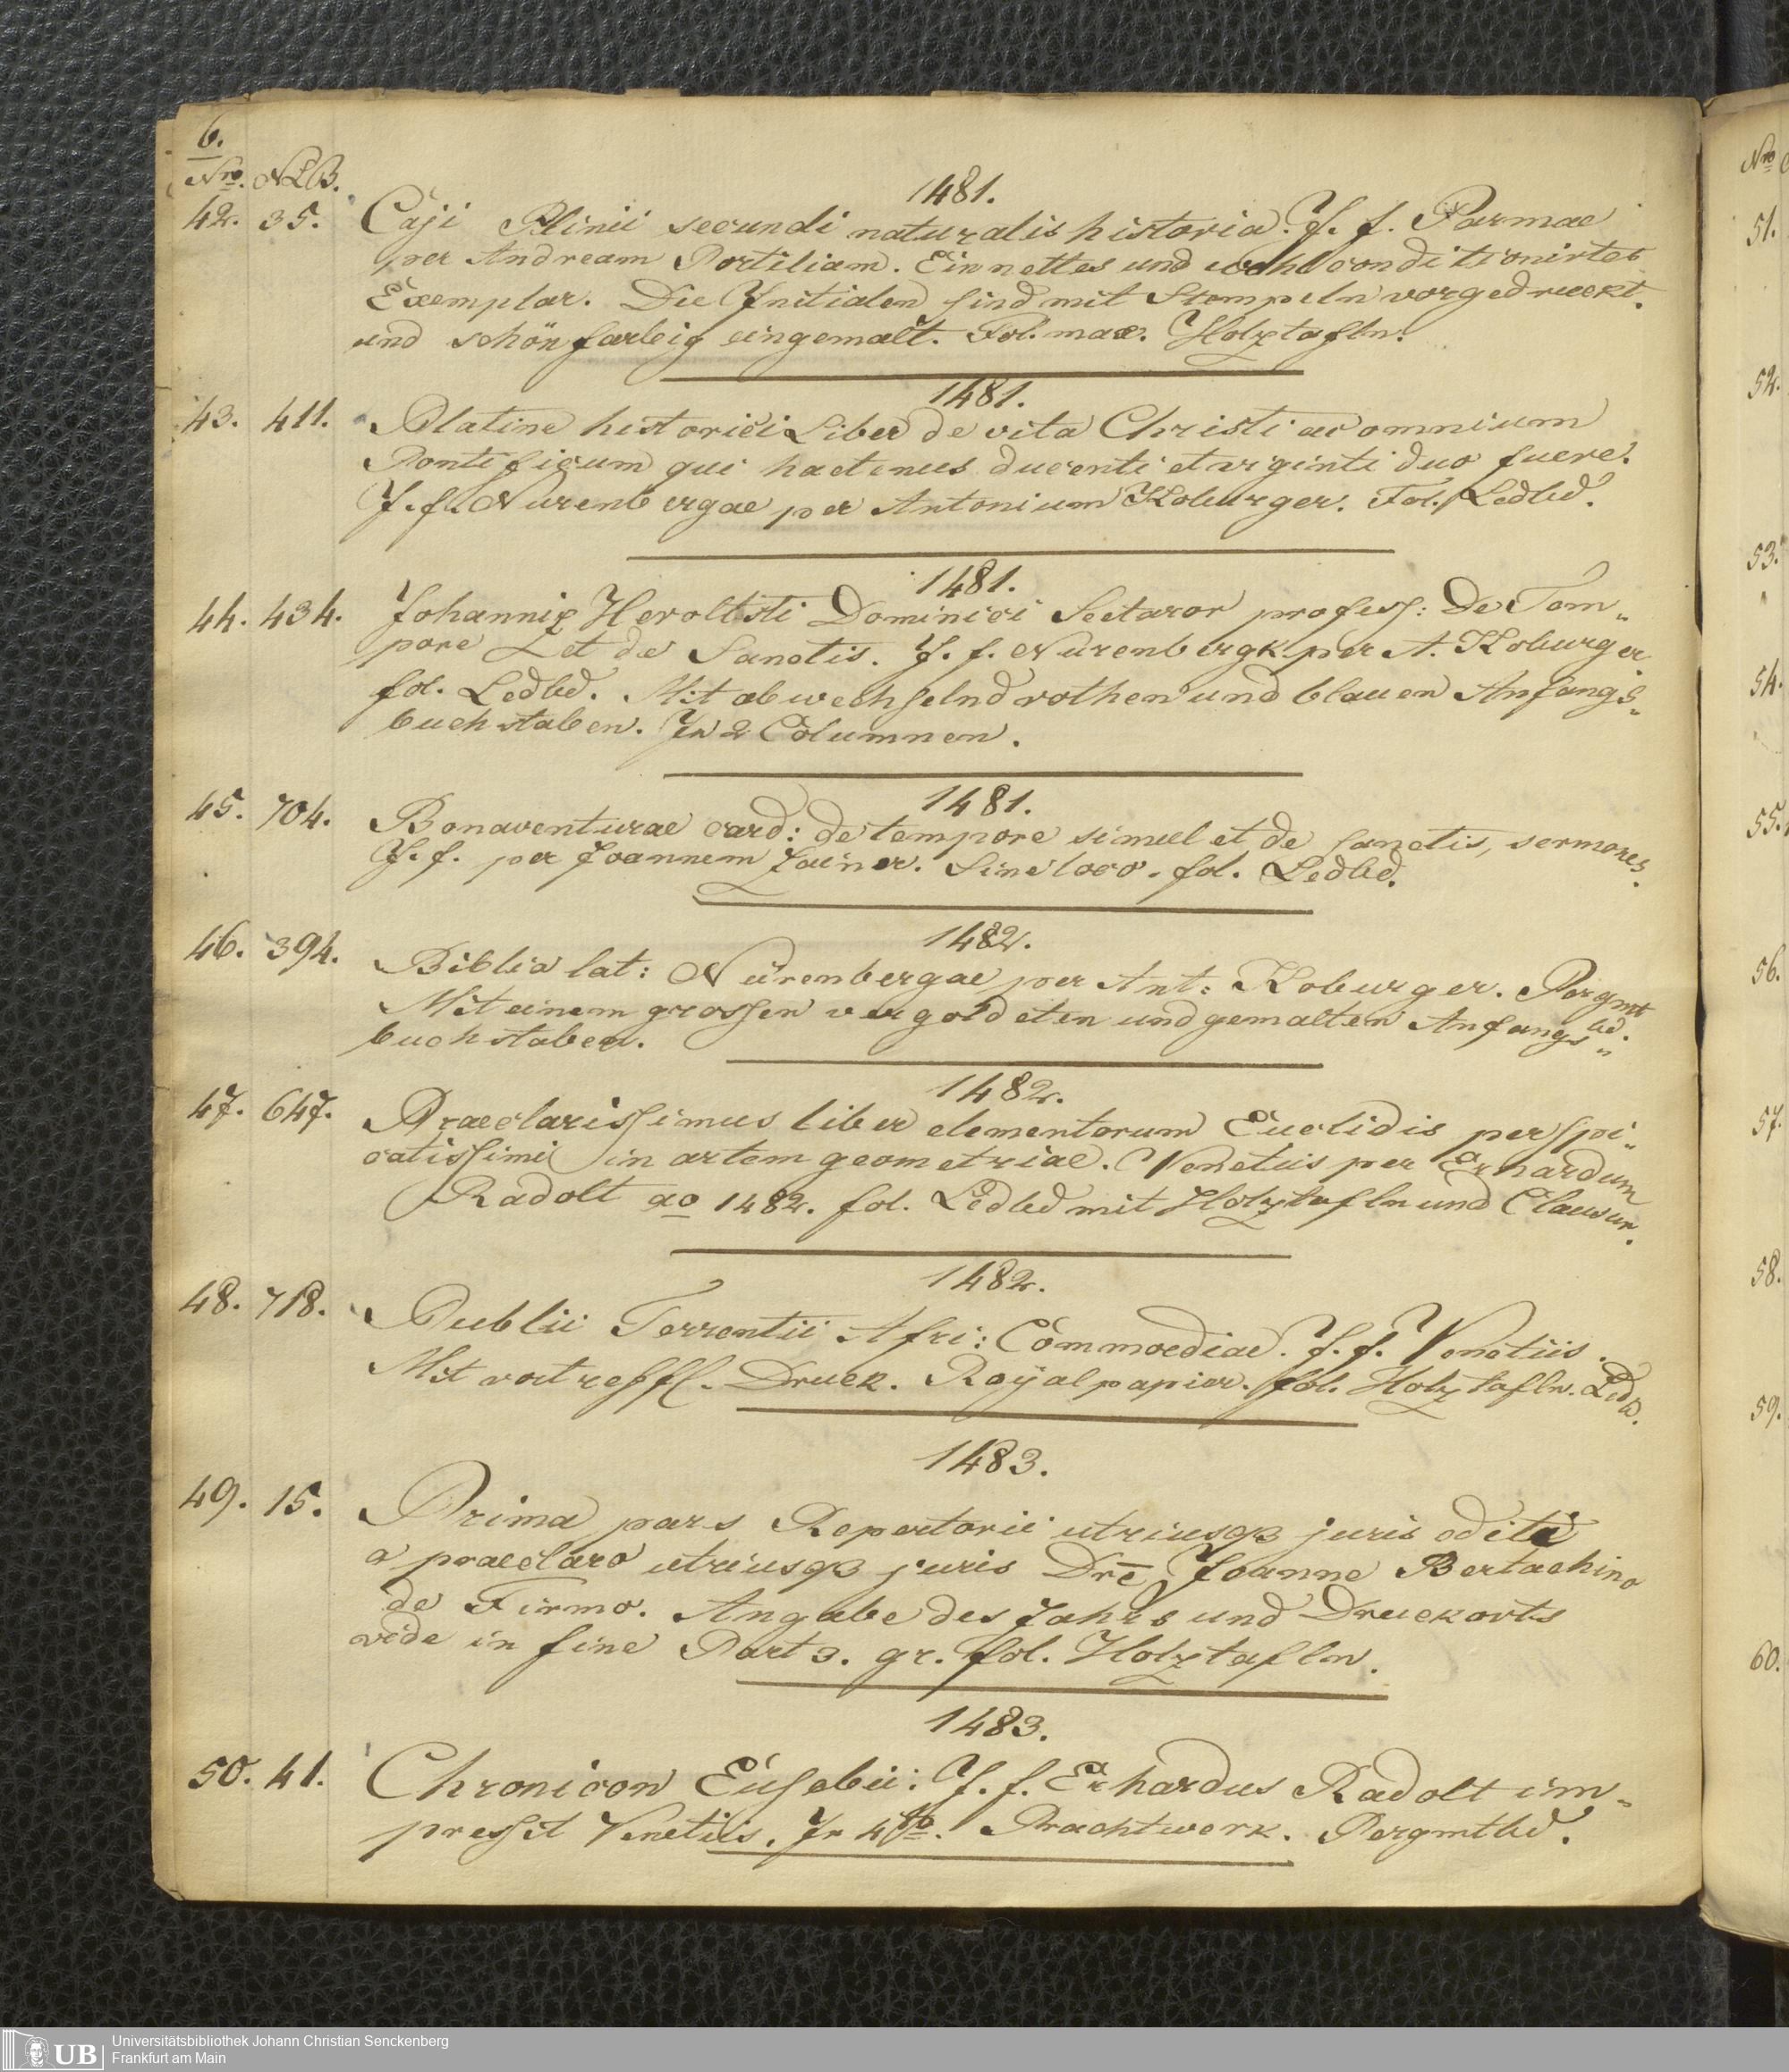 6.
Nro. NLB.
1481.
42. 35. Caji Plinii secundi naturalis historia. J. f. Parmae
per Andream Portiliam. Ein nettes und wohl conditionirtes
Exemplar. Die Initialen sind mit Stempeln vorgedruckt
und schön farbig eingemalt. Fol. max. Holztafln.
1481.
43. 411. Platine historici Liber de vita Christi ac omnium
Pontificum qui hactenus ducenti et viginti duo fuere.
J. f. Nurenbergae per Antonium Koburger. Fol. Ledbd.
1481.
44. 434. Johannis Heroltsti Dominici Sectaror profess: De Tem„
pore et de Sanctis. J. f. Nurenbergk per A. Koburger
fol. Ledbd. Mit abwechselnd rothen und blauen Anfangs„
buchstaben. In 2 Columnen.
1481.
45. 704. Bonaventurae card: de tempore simul et de sanctis, sermones.
J. f. per Joannem Zainer. Sine loco. fol. Ledbd.
1482.
46. 394. Biblia lat: Nürenbergae per Ant: Koburger. Pergmt
bd.
Mit einem grossen vergoldeten und gemalten Anfangs„
buchstaben.
1482.
47. 647. Praeclarissimus liber elementorum Euclidis perspi„
catissimi in artem geometriae. Venetiis per Erhardum
Radolt ao 1482. fol. Ledbd mit Holztafln und Clausur.
1482.
48. 718. Publii Terrentii Afri: Commoediae. J. f. Venetiis.
Mit vortreffl. Druck. Royalpapier. fol. Holztafln. Ledb.
1483.
49. 15. Prima pars Repertorii utriusqз juris editi
a praeclaro utriusqз juris Drē Joanne Bertachino
de Firmo. Angabe des Jahrs und Druckorts
vide in fine Part 3. gr. fol. Holztafln.
1483.
50. 41. Chronicon Eusebii: J. f. Erhardus Radolt im„
pressit Venetiis. In 4to. Prachtwerk. Pergmtbd.
Nro
51.
52.
53.
54.
55.
56.
57.
58.
59.
60.
UB
Universitätsbibliothek Johann Christian Senckenberg
Frankfurt am Main